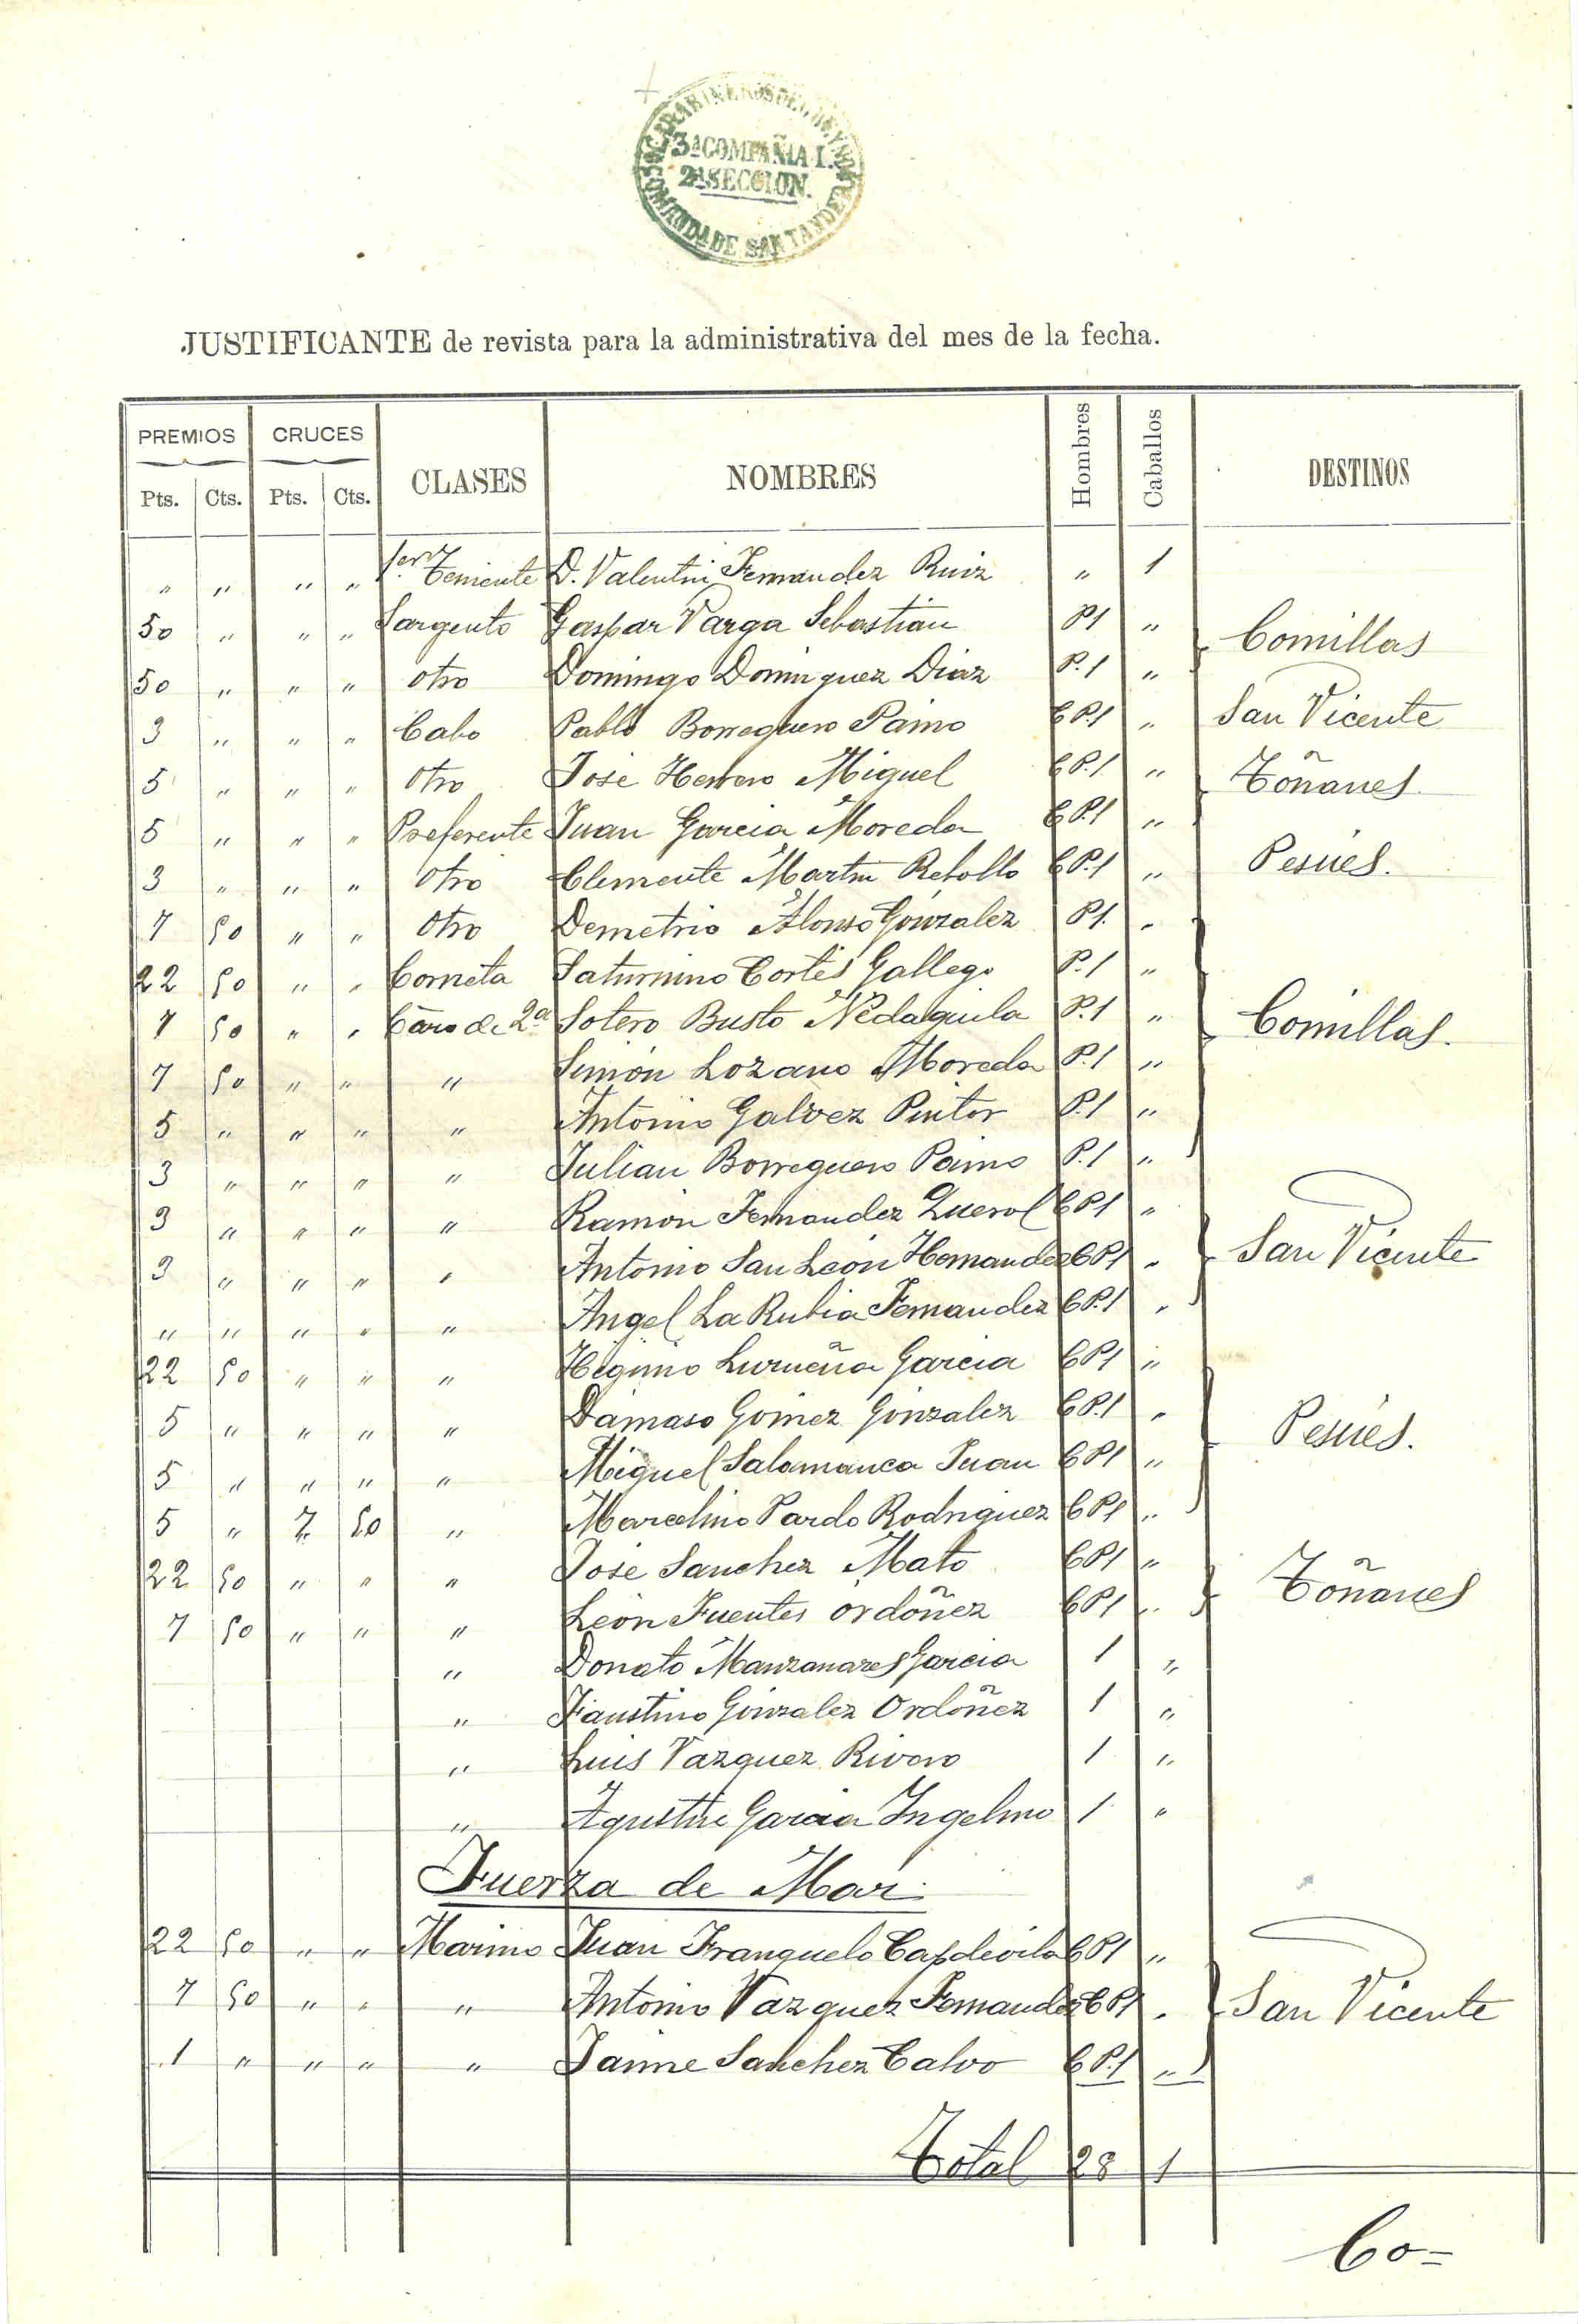 CARABINEROS DEL REYNO
3ª COMPAÑIA I.
2ª SECCION.
COMANDA DE SANTANDER
JUSTIFICANTE de revista para la administrativa del mes de la fecha.
PREMIOS CRUCES CLASES NOMBRES Hombres Caballos DESTINOS
Pts. Cts. Pts. Cts.
" " " " 1er Teniente D. Valentin Fernandez Ruiz " 1
50 " " " Sargento Gaspar Varga Sebastian P1 "
Comillas
50 " " " Otro Domingo Dominguez Diaz P.1 "
3 " " " Cabo Pablo Borreguero Paino C P.1 " San Vicente
5 " " " Otro José Herrero Miguel C P.1 " Toñanes
5 " " " Preferente Juan Garcia Moreda C P.1 "
3 " " " Otro Clemente Martin Rebollo C P.1 " Pesués.
7 50 " " Otro Demetrio Alonso Gonzalez P1. "
22 50 " " Corneta Saturnino Cortés Gallego P.1 "
7 50 " " Caro de 2ª Sotero Busto P.1 " Comillas.
7 50 " " " Simón Lozano Moreda P.1 "
5 " " " " Antonio Galvez Pintor P.1 "
3 " " " " Julian Borreguero Paino P.1 "
3 " " " " Ramón Fernandez Querol C P1 "
3 " " " " Antonio San León Hernandez C P1 " San Vicente
" " " " " Angel La Rubia Fernandez C P.1 "
22 50 " " " Higinio Lurueña Garcia C P1 "
5 " " " " Dámaso Gómez Gonzalez C P.1 " Pesués.
5 " " " " Miguel Salamanca Juan C P1 "
5 " 7 50 " Marcelino Pardo Rodriguez C P1 "
22 50 " " " José Sanchez Mato C P1 " Toñanes
7 50 " " " León Fuentes Ordóñez C P1 "
" Donato Manzanares Garcia 1 "
" Faustino Gonzalez Ordóñez 1 "
" Luis Vazquez Rivero 1 "
" Agustin Garcia Ingelmo 1 "
Fuerza de Mar.
22 50 " " Marino Juan Franquelo Capdevila C P1 "
7 50 " " " Antonio Vazquez Fernandez C P1 " San Vicente
1 " " " " Jaime Sanchez Calvo C P.1 "
Total 28 1
Co=